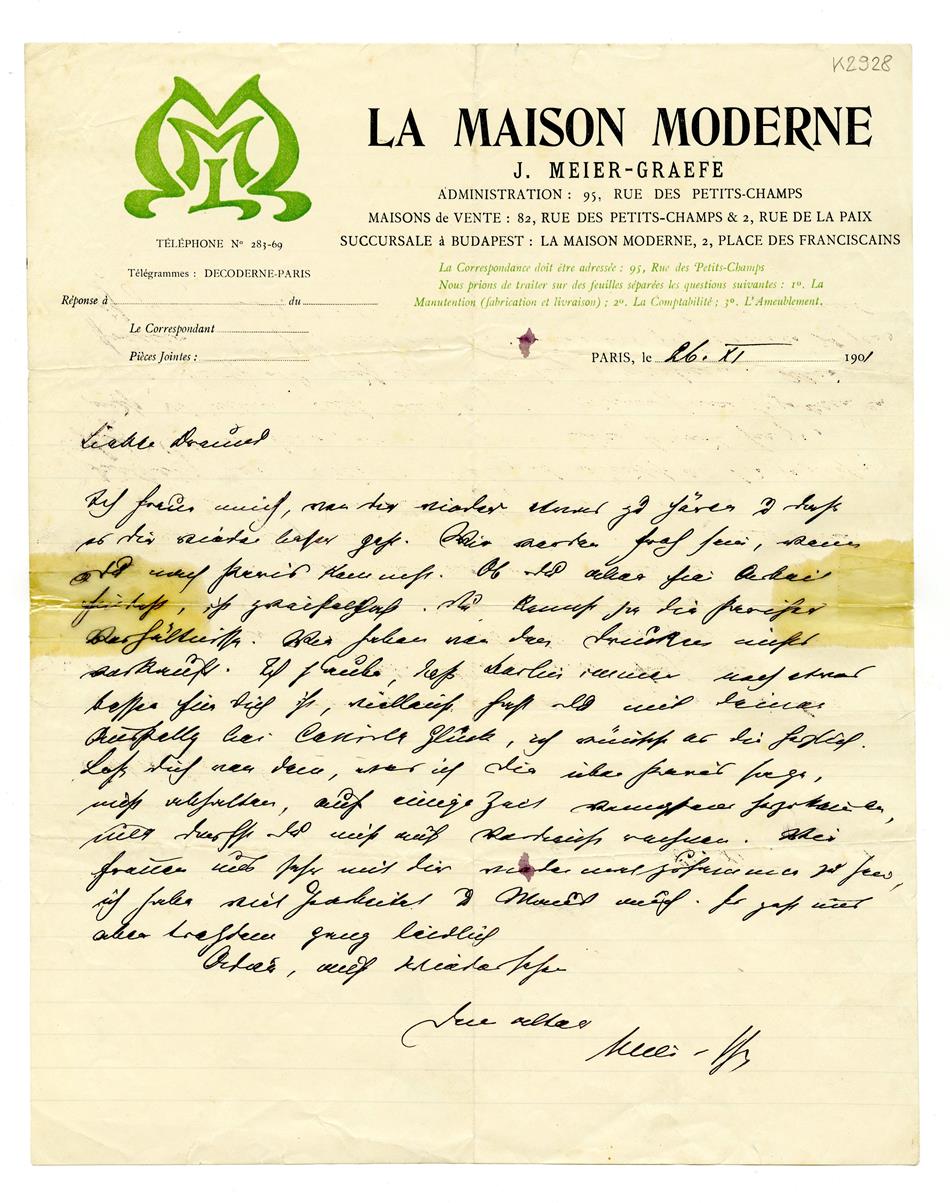 K2928
LA MAISON MODERNE
J. MEIER-GRAEFE
ADMINISTRATION : 95, RUE DES PETITS-CHAMPS
MAISONS de VENTE : 82, RUE DES PETITS-CHAMPS & 2, RUE DE LA PAIX
SUCCURSALE à BUDAPEST : LA MAISON MODERNE, 2, PLACE DES FRANCISCAINS
MML
TÉLÉPHONE Nº 283-69
Télégrammes : DECODERNE-PARIS
La Correspondance doit être adressée : 95, Rue des Petits-Champs
Nous prions de traiter sur des feuilles séparées les questions suivantes : 1º. La
Manutention (fabrication et livraison) ; 2º. La Comptabilité ; 3º. L'Ameublement.
Réponse à du
Le Correspondant
Pièces Jointes :
PARIS, le 26. XI 1901
Ich freue mich, von dir wieder etwas zu hören u dass
es dir wieder besser geht. Wir werden froh sein, wenn
du nach Paris kommst. Ob du aber hier Arbeit
findest, ist zweifelhaft. Du kennst ja die Pariser
Verhältnisse. Wir haben von den Drucken nichts
verkauft. Ich glaube, dass Berlin immer noch etwas
besser für dich ist, vielleicht hast du mit deiner
Ausstellg bei Cassirer Glück, ich wünsche es dir herzlich.
Lass dich von dem, was ich dir über Paris sage,
nicht abhalten, auf einige Zeit herzukommen,
nur darfst du nicht auf Verdienst rechnen. Wir
freuen uns sehr mit dir wieder mal zusammen zu sein,
ich habe viel gearbeitet u auch. Es geht uns
aber trotzdem ganz leidlich
Adieu, auf Wiedersehen
Dein alter
Meier-Gr